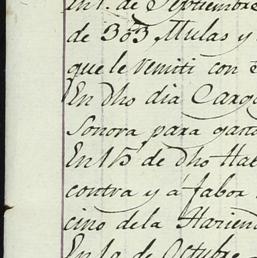 En 1º de Septiembre
de 303 Mulas y
que le remiti con
En dho dia Cargo
Sonora para gasto
En 15 de dho Hab
contra y á fabor
cino de la Hacien
En 1º de Octubre